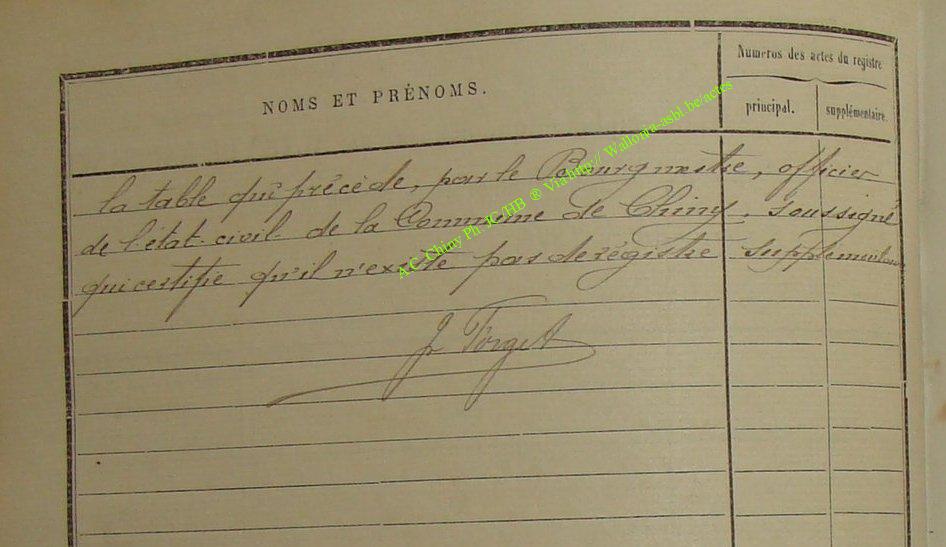 Numeros des actes du registre
NOMS ET PRÉNOMS.
principal.
supplémentaire.
la table qui précède, par le Bourgmestre, officier
de l'état-civil de la Commune de Chiny, soussigné
qui certifie qu'il n'existe pas de régistre supplémentaire
Jr Forget
A.C. Chiny Ph JC/HB ® Via http:// Wallonia-asbl.be/actes